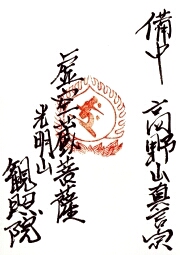 備中 高野山真言宗
虚空蔵菩薩
光明山
観照院